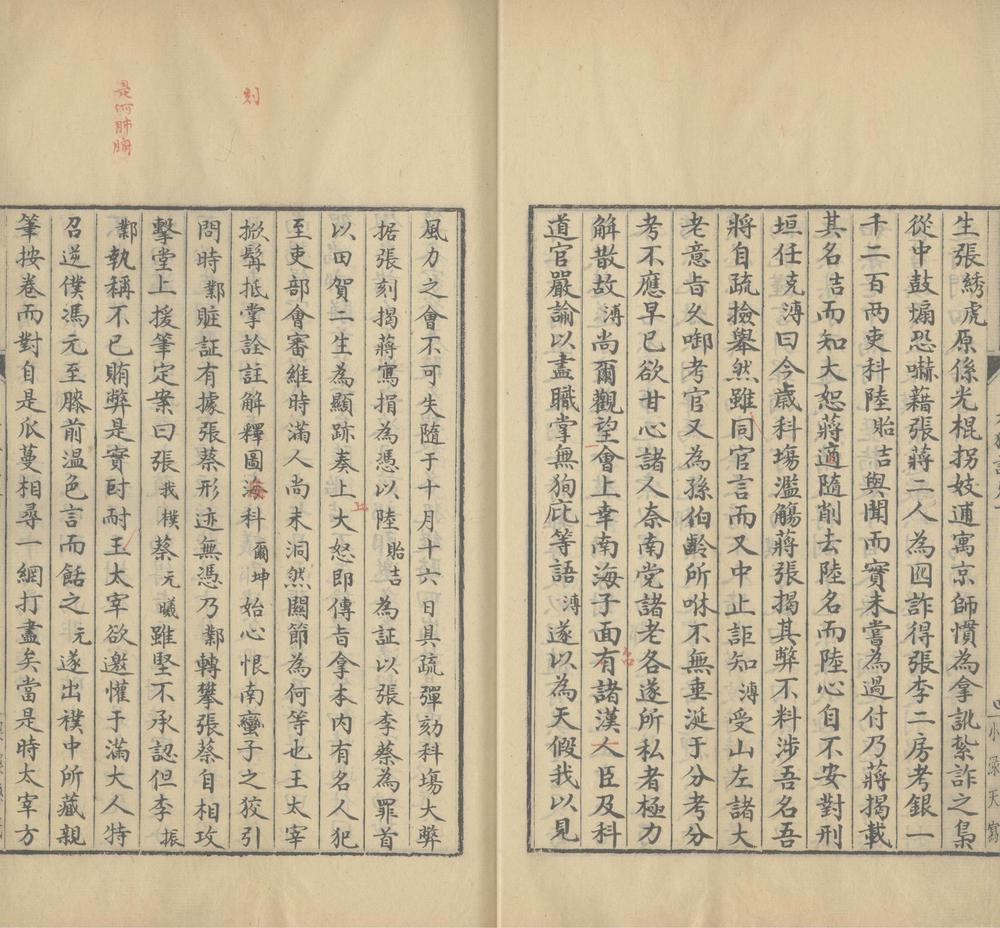 生張綉虎原係光棍拐妓逋寓京師慣為拿訛紮詐之梟
從中鼓煽恐嚇藉張蔣二人為囮詐得張李二房考銀一
千二百两吏科陸貽吉與聞而實未嘗為過付乃蔣揭載
其名吉而知大恕蔣適隨削去陸名而陸心自不安對刑
垣任克溥曰今歲科塲濫觴蔣張揭其弊不料涉吾名吾
將自疏撿舉然雖同官言而又中止詎知溥受山左諸大
老意旨久啣考官又為孫伯齡所咻不無垂涎于分考分
考不應早已欲甘心諸人奈南党諸老各遂所私者極力
解散故溥尚爾觀望會上幸南海子面有諸漢人臣及科
名
道官嚴諭以盡職掌無狥庇等語溥遂以為天假我以見
小录天寫
風力之會不可失隨于十月十六日具疏彈刻科塲大弊
据張刻揭蔣寫捐為憑以陸貽吉為証以張李蔡為罪首
以田賀二生為顯跡奏上大怒即傳旨拿本内有名人犯
上
至吏部會審維時滿人尚未洞然關節為何等也王太宰
掀髯抵掌詮註解釋圖海科爾坤始心恨南蠻子之狡引
刻
問時鄴賍証有據張蔡形迹無憑乃鄴轉攀張蔡自相攻
擊堂上援筆定案曰張我樸蔡元曦雖堅不承認但李振
鄴執稱不已賄弊是實酎耐王太宰欲邀懽于滿大人特
是何肺腑
召逆僕馮元至膝前温色言而餂之元遂出襆中所藏親
筆按卷而對自是瓜蔓相尋一網打盡矣當是時太宰方